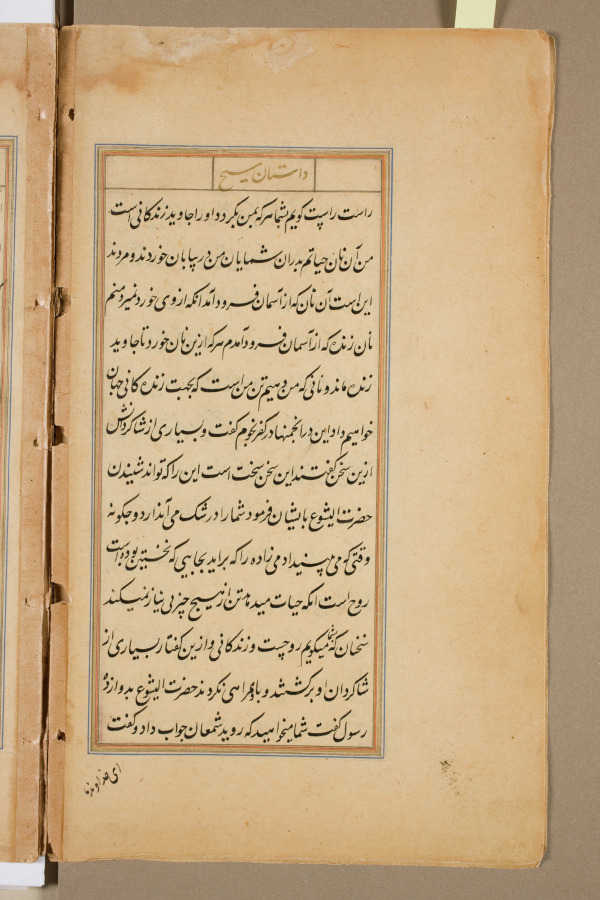 داستان مسیح
راست راست کویم بشما هرکه بمن بکرد د او را جاوید زندکانی است
من آن نان حیاتم پدران شمایان من در بیابان خوردند و مردند
این است آن نان که از آسمان فرود آمد انکه از وی خورد نمیرد منم
نان زنده که از آسمان فرود آمدم هرکه ازین نان خورد تا جاوید
زنده ماند و نانی که من دهیم تن من است که بجهت زنده کانی جهان
خواهیم داد این در انجمنها در کفرنحوم کفت و بسیاری از شاکردانش
ازین سخن کفتند این سخن سخت است این را که تواند شنیدن
حضرت ایشوع بایشان فرمود شما را در شک می آندازد و چکونه
وقتی که می بینید ادمی زاده را که براید بجایی که نخستین بوده است
روح است انکه حیات میدهد تن از هیچ چیز بی نیاز نمیکند
سخنان که بشما میکویم روحیست و زندکانی و ازین کفتار بسیاری از
شاکردان او برکشتند و با او همراهی نکردند حضرت ایشوع بدوازده
رسول کفت شما میخواهید که روید شمعان جواب داد و کفت
ای خداوند ما